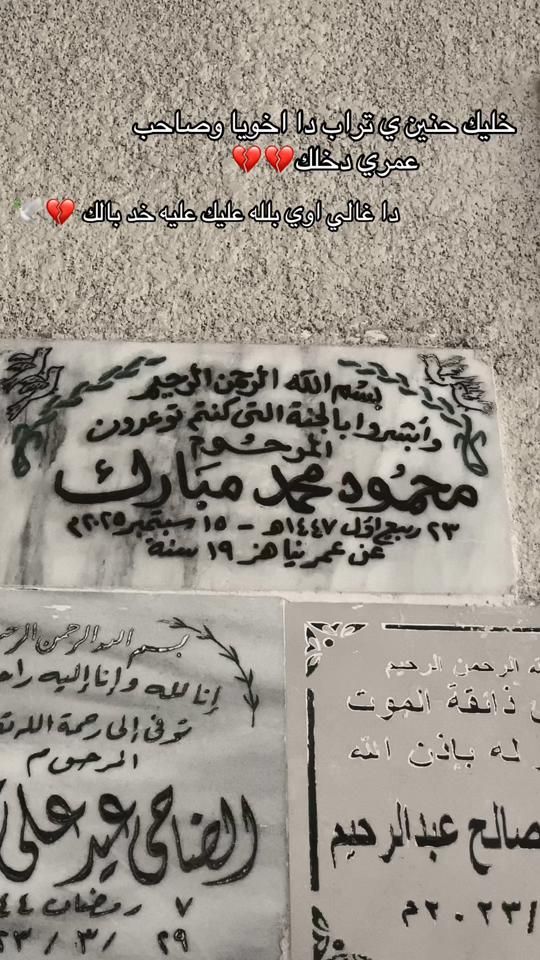 خليك حنين ي تراب دا اخويا وصاحب
عمري دخلك💔💔
دا غالي اوي بلله عليك عليه خد بالك 💔🕊
بسم الله الرحمن الرحيم
وأبشروا بالجنة التى كنتم توعدون
المرحوم
محمود محمد مبارك
٢٣ ربيع اول ١٤٤٧هـ - ١٥ سبتمبر ٢٠٢٥م
عن عمر يناهز ١٩ سنة
بسم الله الرحمن الرحيم
إنا لله وإنا إليه
توفى إلى رحمة الله
المرحوم
الضاحى عيد على
٧ رمضان
٢٩ / ٣ /
الرحمن الرحيم
ذائقة الموت
له بإذن الله
صالح عبدالرحيم
/٢٠٢٣م